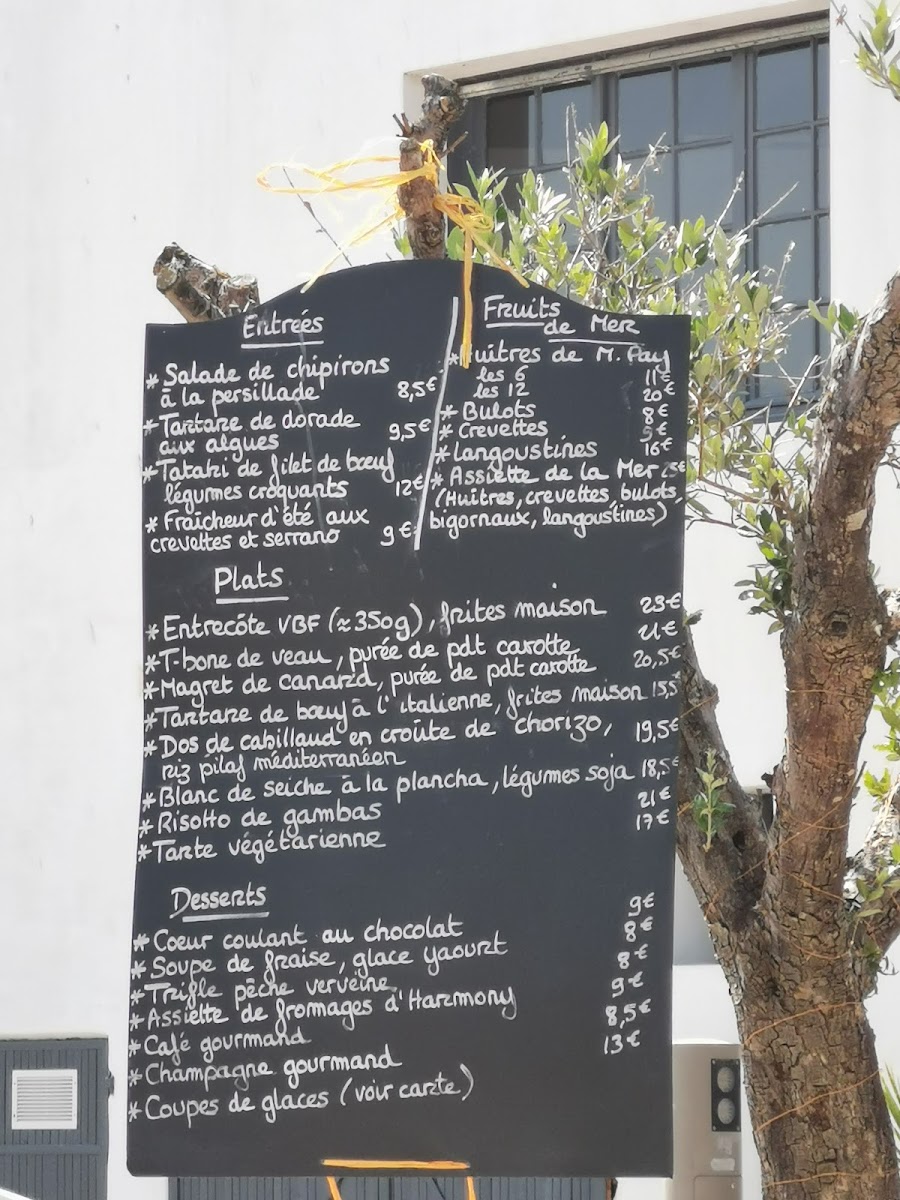 Entrées
* Salade de chipirons
à la persillade 8,5€
* Tartare de dorade
aux algues 9,5€
* Tataki de filet de bœuf
légumes croquants 12€
* Fraîcheur d'été aux
crevettes et serrano 9€
Fruits
de Mer
* Huîtres de M.
les 6 11€
les 12 20€
* Bulots 8€
* Crevettes 9€
* Langoustines 16€
* Assiette de la Mer 25€
(Huîtres, crevettes, bulots,
bigornaux, langoustines)
Plats
* Entrecôte VBF (≈350g), frites maison 23€
* T-bone de veau, purée de pdt carotte 21€
* Magret de canard, purée de pdt carotte 20,5€
* Tartare de bœuf à l'italienne, frites maison 15,5
* Dos de cabillaud en croûte de chorizo, 19,5€
riz pilaf méditerranéen
* Blanc de seiche à la plancha, légumes soja 18,5€
* Risotto de gambas 21€
* Tarte végétarienne 17€
Desserts
* Coeur coulant au chocolat 9€
* Soupe de fraise, glace yaourt 8€
* Trifle pêche verveine 8€
* Assiette de fromages d'Harmony 9€
* Café gourmand 8,5€
* Champagne gourmand 13€
* Coupes de glaces (voir carte)